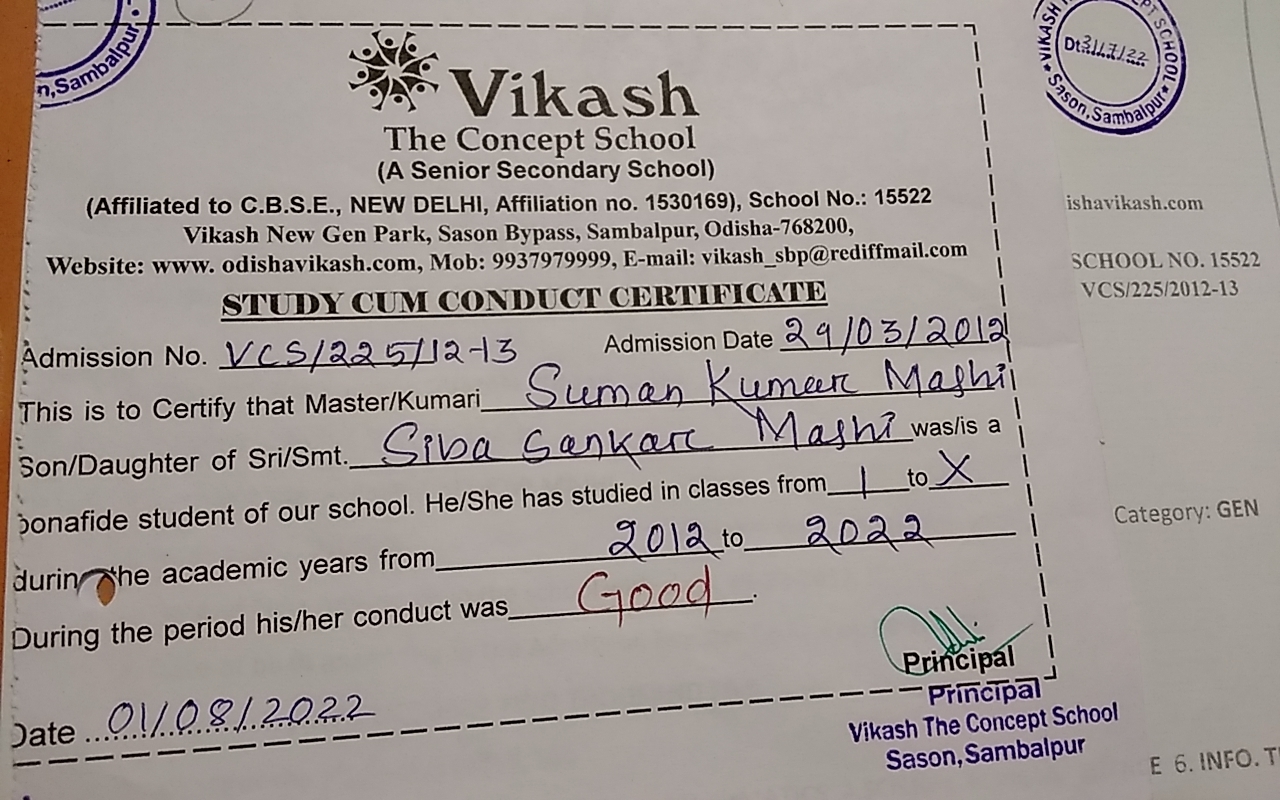 n, Sambalpur
Vikash
The Concept School
(A Senior Secondary School)
(Affiliated to C.B.S.E., NEW DELHI, Affiliation no. 1530169), School No.: 15522
Vikash New Gen Park, Sason Bypass, Sambalpur, Odisha-768200,
Website: www. odishavikash.com, Mob: 9937979999, E-mail: vikash_sbp@rediffmail.com
STUDY CUM CONDUCT CERTIFICATE
Admission No. VCS/225/12-13 Admission Date 29/03/2012
This is to Certify that Master/Kumari Suman Kumar Mashi
Son/Daughter of Sri/Smt. Siba Sankar Mashi was/is a
bonafide student of our school. He/She has studied in classes from I to X
during the academic years from 2012 to 2022
During the period his/her conduct was Good.
Principal
Principal
Vikash The Concept School
Sason, Sambalpur
Date 01/08/2022
VIKASH PT SCHOOL
Dt. 31/7/22
Sason, Sambalpur
ishavikash.com
SCHOOL NO. 15522
VCS/225/2012-13
Category: GEN
E 6. INFO. T